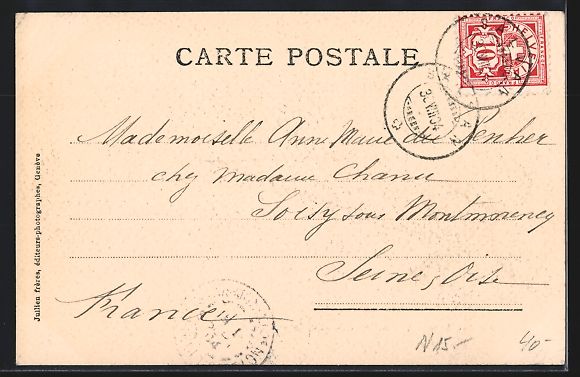 CARTE POSTALE
HELVETIA
10
Mademoiselle Anne Marie du
chez Madame Chanu
Soisy sous Montmorency
Seine & Oise
France
Jullien frères, éditeurs-photographes, Genève
N 15.—
40-